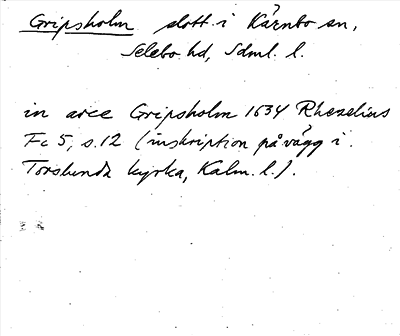 Gripsholm slott i Kärnbo sn,
Selebo hd, Sdml. l.
in arce Gripsholm 1634 Rhezelius
Fc 5, s. 12 (inskription på vägg i
Torslunda kyrka, Kalm. l.).